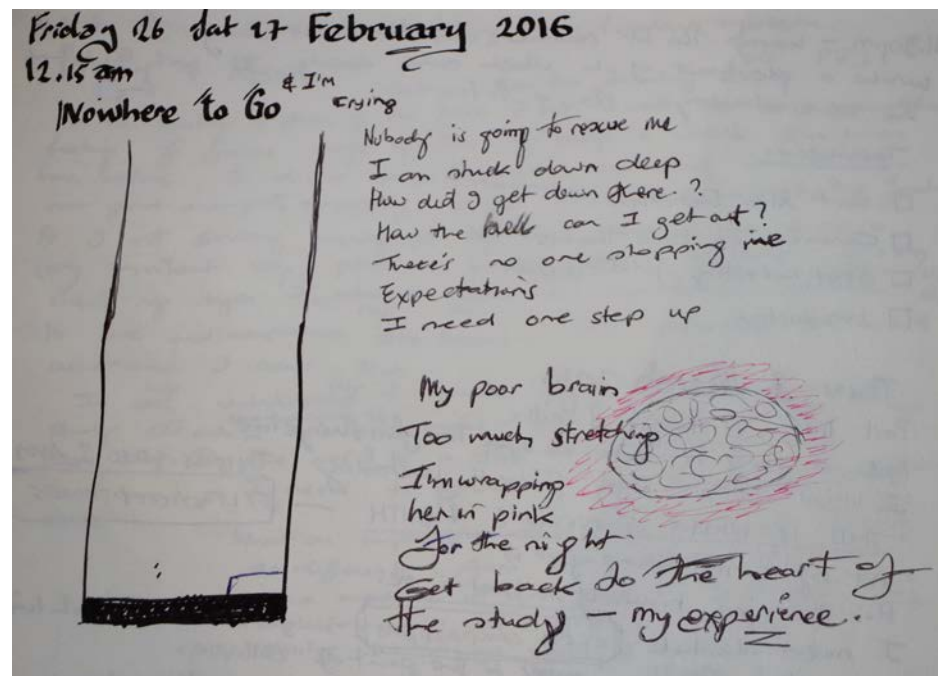 Friday 26 Sat 27 February 2016
12.15 am
Nowhere to Go & I'm crying
Nobody is going to rescue me
I am stuck down deep
How did I get down there?
How the hell can I get out?
There's no one stopping me
Expectations
I need one step up
My poor brain
Too much stretching
I'm wrapping
her in pink
for the night
Get back to the heart of
the study – my experience.